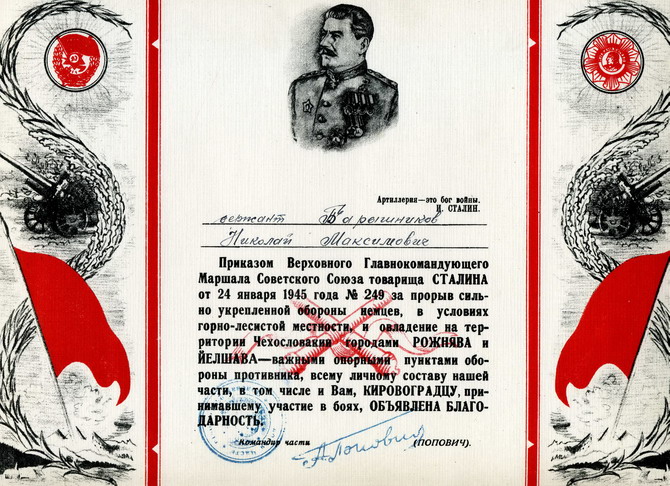 Артиллерия—это бог войны.
И. СТАЛИН.
сержант Барышников
Николай Максимович
Приказом Верховного Главнокомандующего
Маршала Советского Союза товарища СТАЛИНА
от 24 января 1945 года № 249 за прорыв силь-
но укрепленной обороны немцев, в условиях
горно-лесистой местности, и овладение на тер-
ритории Чехословакии городами РОЖНЯВА и
ЙЕЛШАВА—важными опорными пунктами обо-
роны противника, всему личному составу нашей
части, в том числе и Вам, КИРОВОГРАДЦУ, при-
нимавшему участие в боях, ОБЪЯВЛЕНА БЛАГО-
ДАРНОСТЬ.
Командир части А Попович (ПОПОВИЧ).